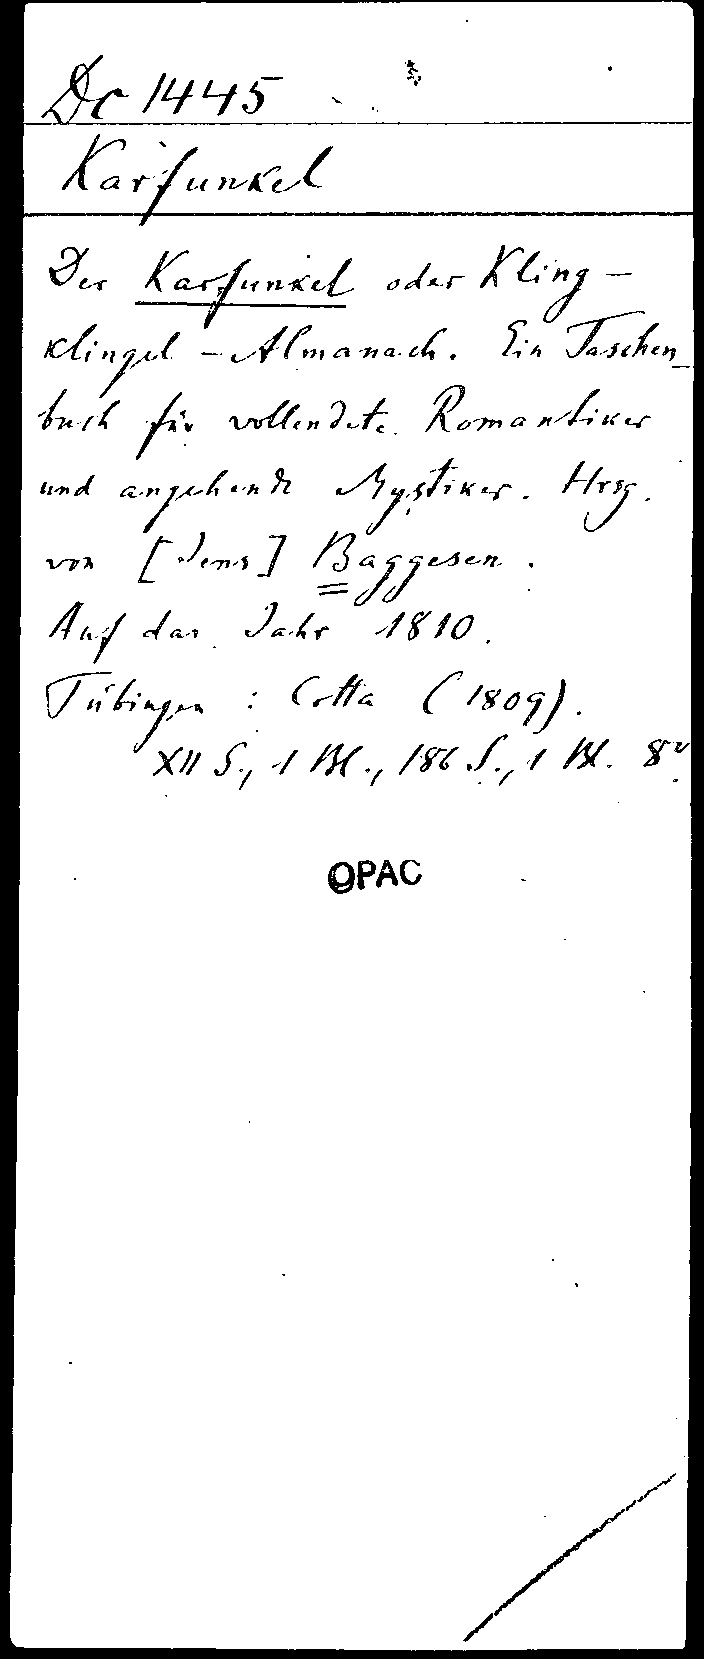 Dc 1445
Karfunkel
Der Karfunkel oder Kling-
klingel-Almanach. Ein Taschen-
buch für vollendete Romantiker
und angehende Mystiker. Hrsg.
von [Jens] Baggesen.
Auf das Jahr 1810.
Tübingen: Cotta (1809).
XII S., 1 Bl., 186 S., 1 Bl. 8°
OPAC